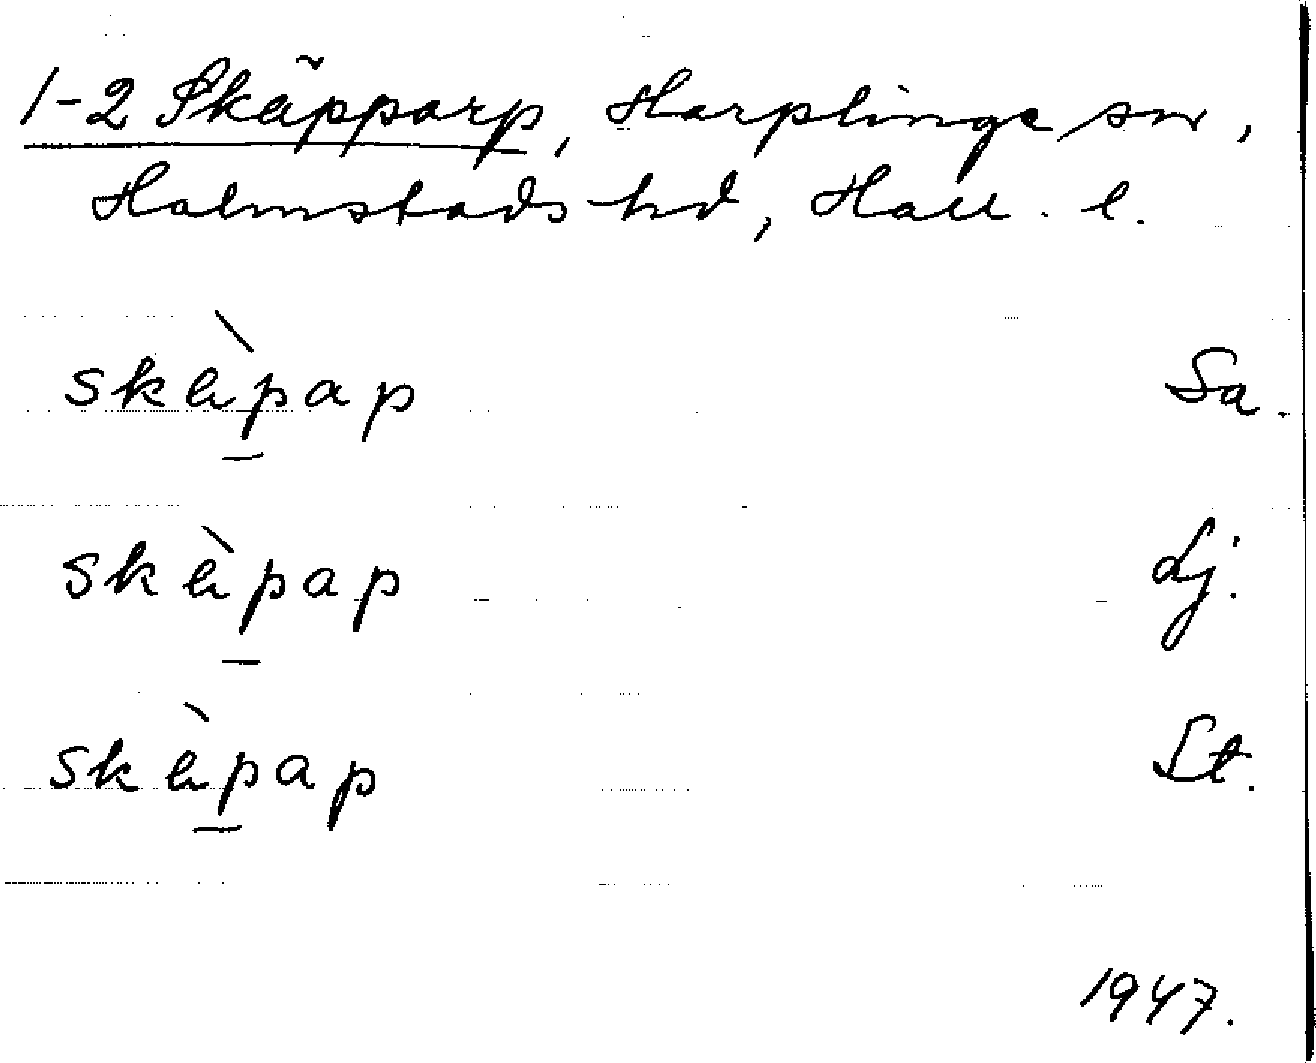 1-2 Skäpparp, Harplinge sn,
Halmstads hd, Hall. l.
skὰp̲ap Sa.
skὰp̲ap Lj.
skὰp̲ap St.
1947.